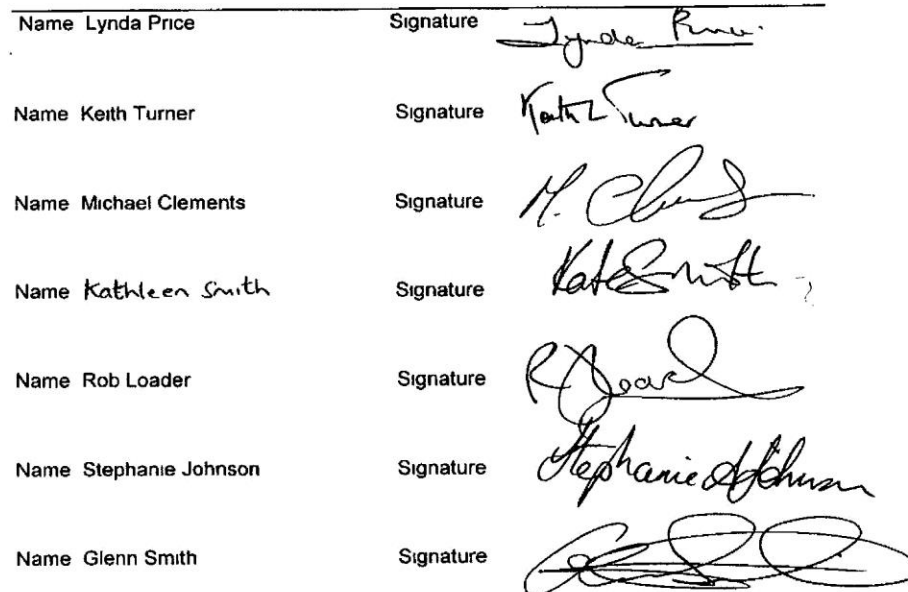 Name Lynda Price Signature Lynda Price
Name Keith Turner Signature Keith Turner
Name Michael Clements Signature M. Clements
Name Kathleen Smith Signature Kate Smith
Name Rob Loader Signature
Name Stephanie Johnson Signature Stephanie Johnson
Name Glenn Smith Signature